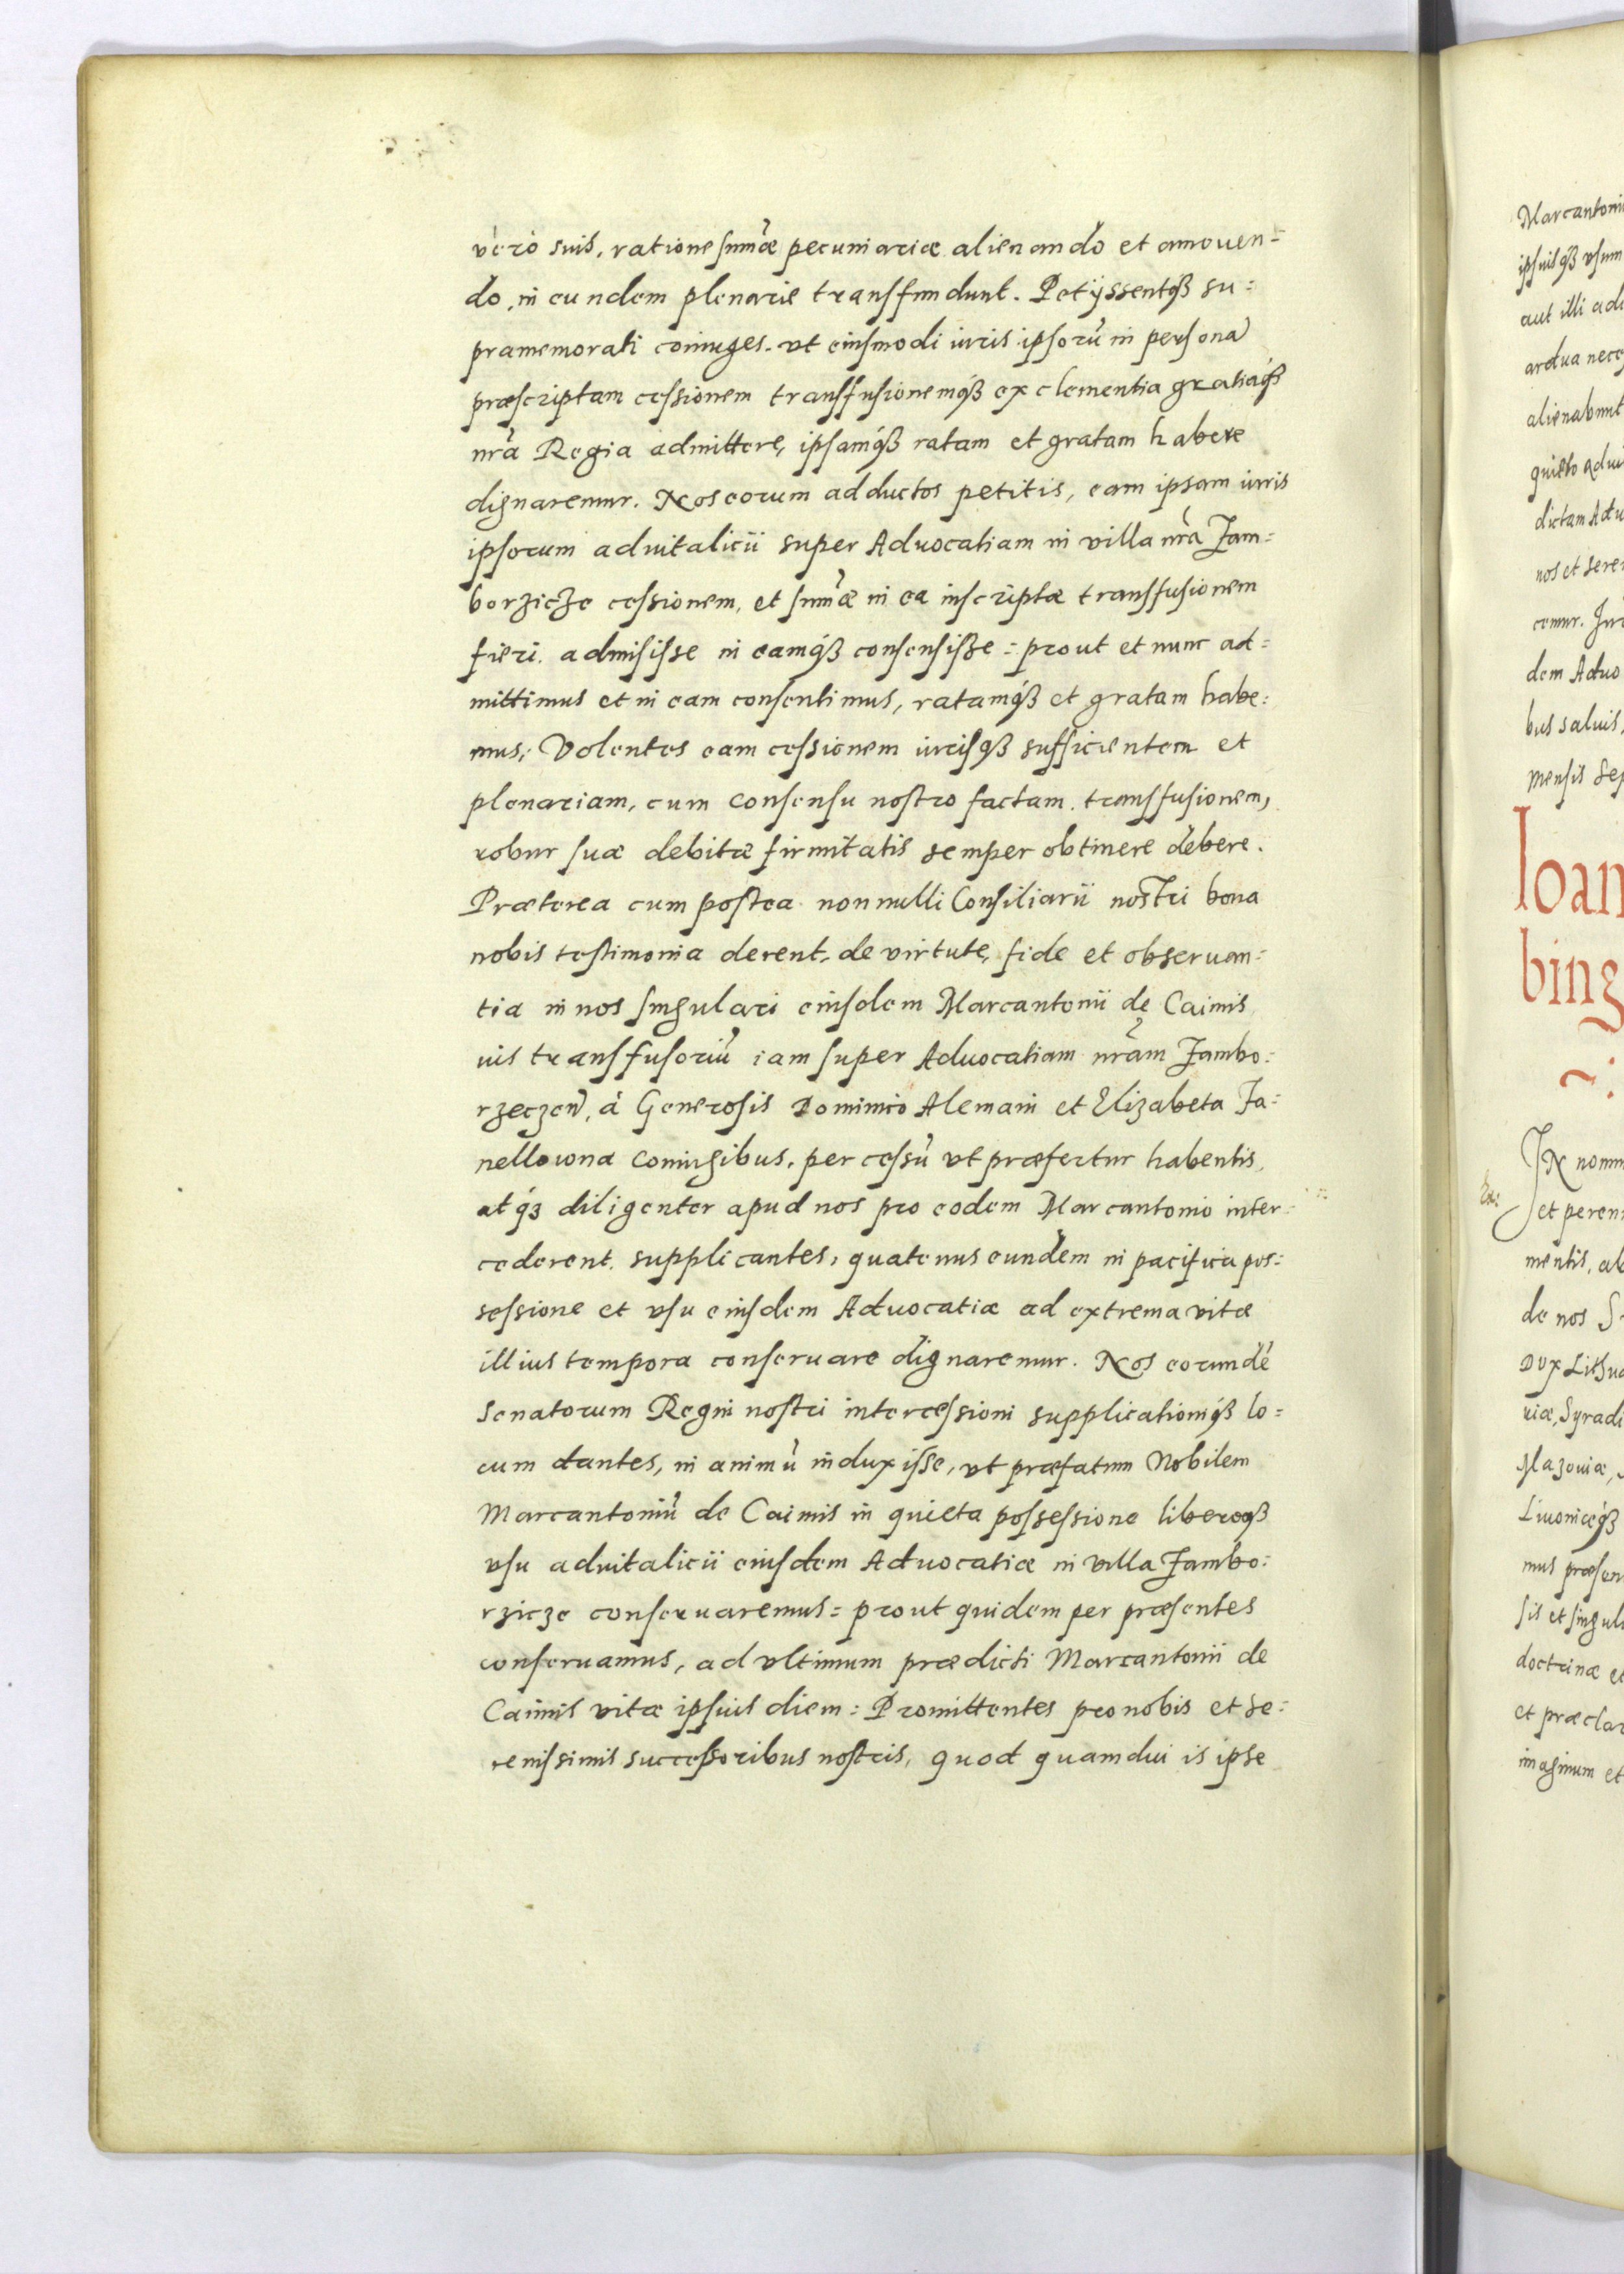 vero suis, ratione sum̃æ pecuniariæ alienando et amouen=
do, in eundem plenarie transfundunt. Petijssentq́ꝫ su=
pramemorati coniuges. vt eiusmodi iuris ipsorũ in personã
præscriptam cessionem transfusionemq́ꝫ ex clementia gratiaq́ꝫ
nr̃a Regia admittere, ipsamq́ꝫ ratam et gratam habere
dignaremur. Nos eorum adductos petitis, eam ipsam iuris
ipsorum aduitalicii super Aduocatiam in villa nr̃a Jam=
borzicze cessionem, et sum̃æ in ea inscriptæ transfusionem
fieri. admisisse in eamq́ꝫ consensisse = prout et nunc ad=
mittimus et in eam consentimus, ratamq́ꝫ et gratam habe=
mus; Volentes eam cessionem iurisq́ꝫ sufficientem et
plenariam, cum consensu nostro factam transfusionem,
robur suæ debitæ firmitatis semper obtinere debere.
Præterea cum postea nonnulli Consiliarii nostri bona
nobis testimonia derent, de virtute, fide et obseruan=
tia in nos singulari eiusdem Marcantonii de Caimis
ius transfusoriũ iam super Aduocatiam nr̃am Jambo=
rzeczeñ, à Generosis Dominico Alemani et Elizabeta Ja=
nellowna Coniugibus, per cessũ vt præfertur habentis,
atq́ꝫ diligenter apud nos pro eodem Marcantonio inter=
cederent supplicantes, quatenus eundem in pacifica pos=
sessione et vsu eiusdem Aduocatiæ ad extrema vitæ
illius tempora conseruare dignaremur. Nos eorundẽ
Senatorum Regni nostri intercessioni supplicationiq́ꝫ lo=
cum dantes, in animũ induxisse, vt præfatum Nobilem
Marcantoniũ de Caimis in quieta possessione liberoqꝫ
vsu aduitalicii eiusdem Aduocatiæ in villa Jambo=
rzicze conseruaremus = prout quidem per præsentes
conseruamus, ad vltimum prædicti Marcantonii de
Caimis vitæ ipsius diem = Promittentes pro nobis et Se=
renissimis successoribus nostris, quod quamdiu is ipse
Marcantoni
ipsiusq́ꝫ vsum
aut illi
ardua
alienabunt
quieto
dictam
nos et
cemur.
dem
bus saluis,
mensis
Ioan
bing
IN
et
mentis,
de nos
DVX
Mazouiæ,
Liuoniæq́ꝫ
mus
sis et
doctrinæ
et
imaginum et